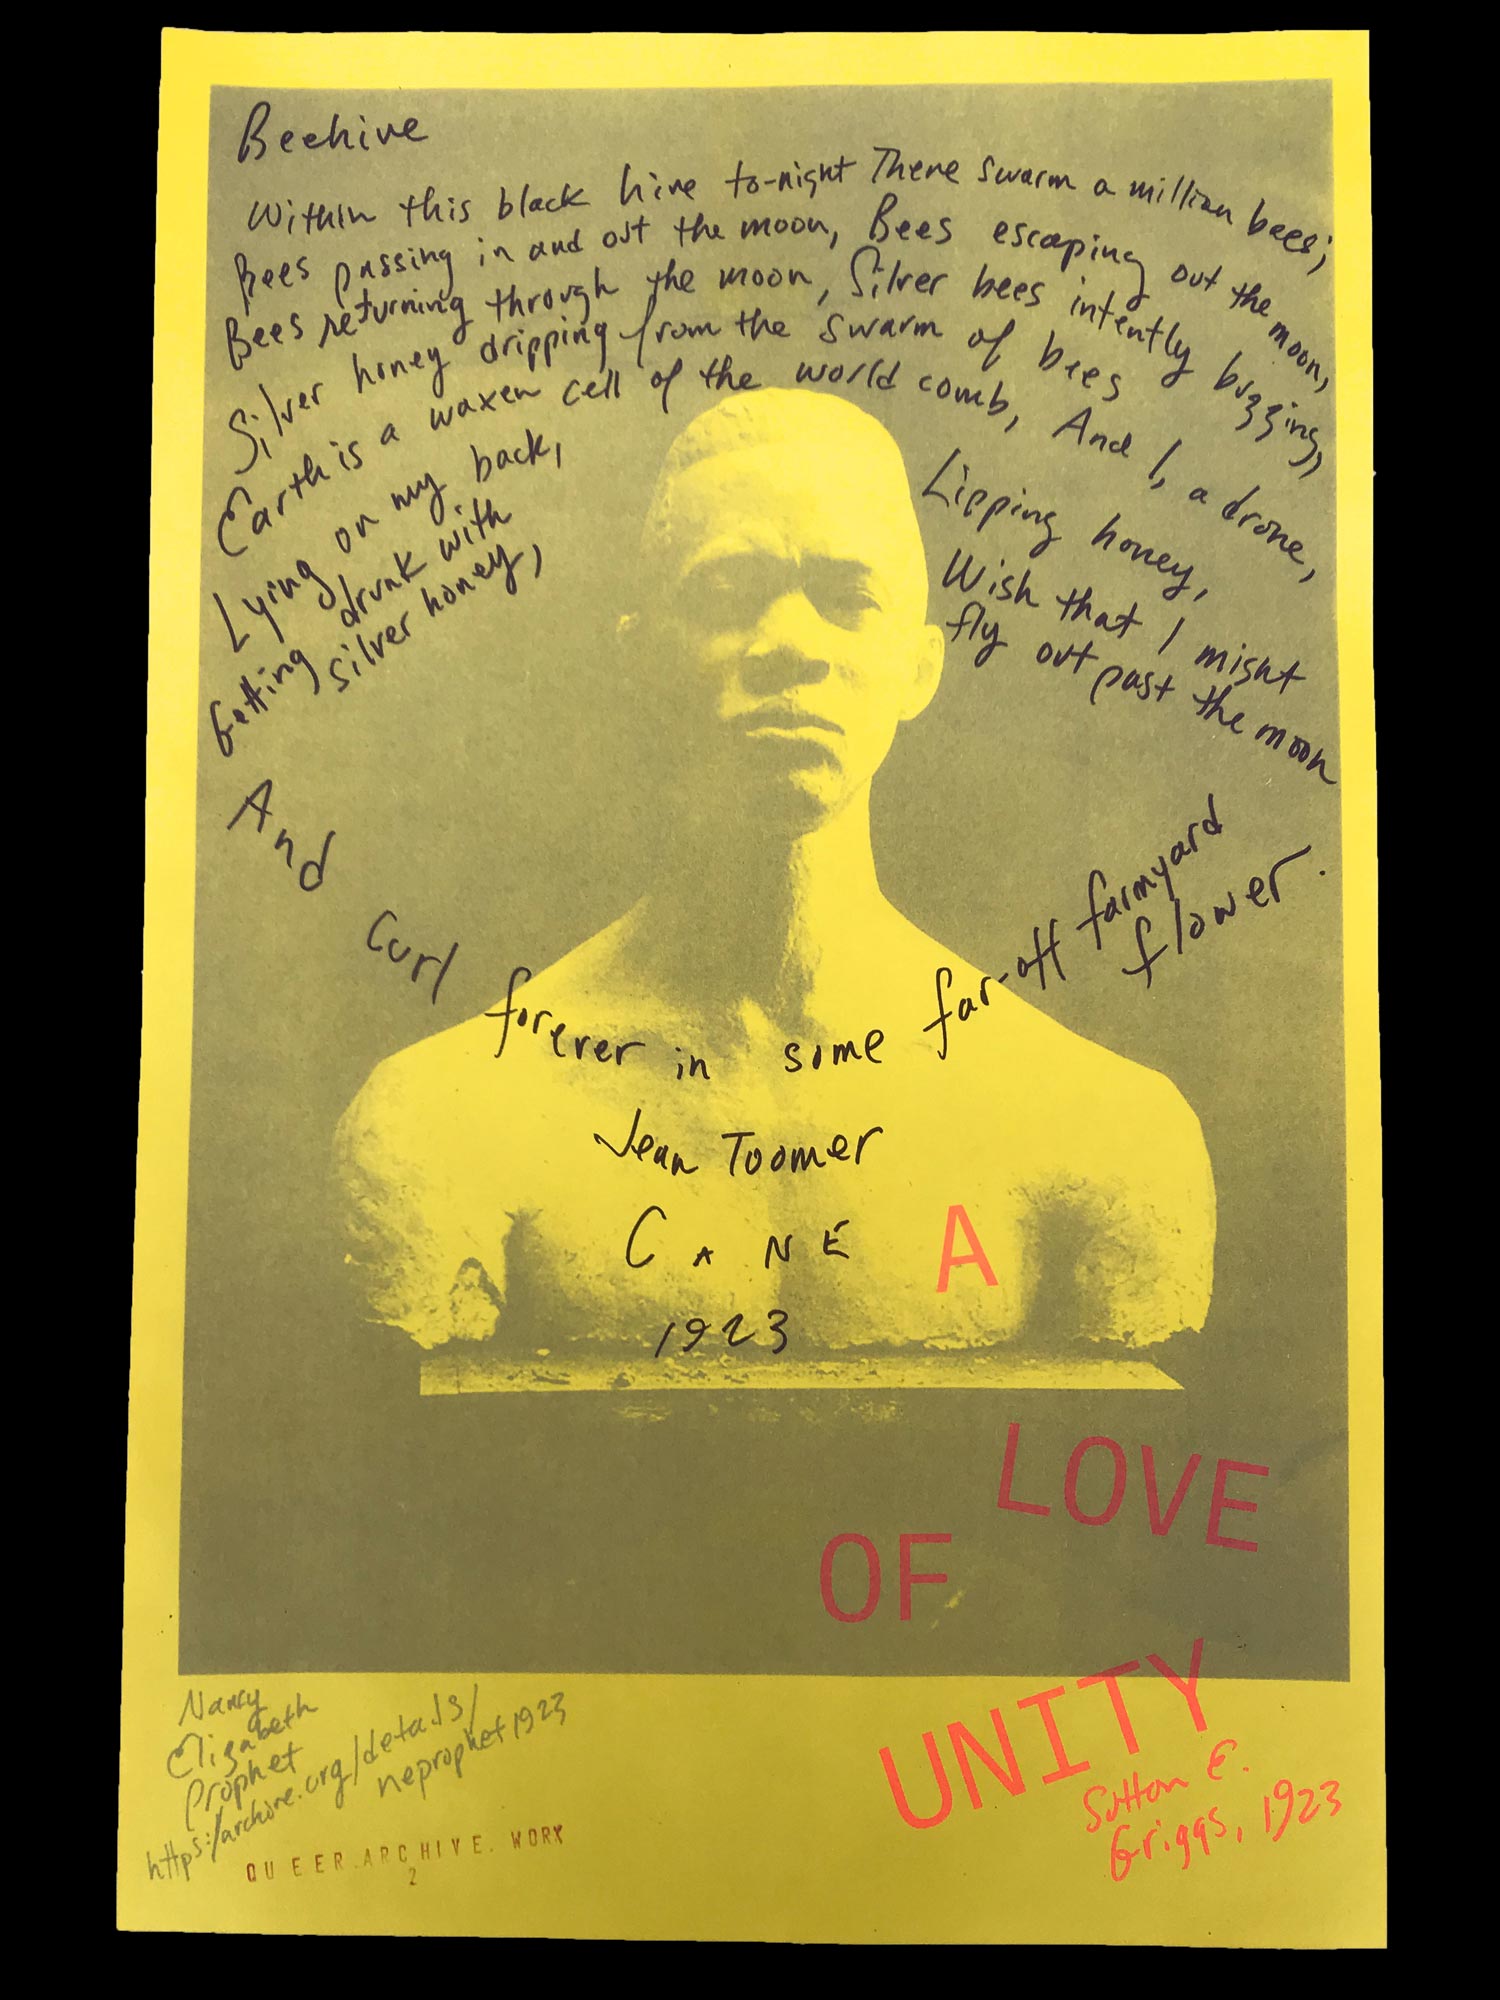 Beehive
Within this black hive to-night There swarm a million bees;
Bees passing in and out the moon, Bees escaping out the moon,
Bees returning through the moon, Silver bees intently buzzing,
Silver honey dripping from the swarm of bees
Earth is a waxen cell of the world comb, And I, a drone,
Lying on my back,
Getting drunk with
silver honey,
Lipping honey,
Wish that I might
fly out past the moon
And curl forever in some far-off farmyard
flower.
Jean Toomer
CANE
1923
A
LOVE
OF
UNITY
Sutton E.
Griggs, 1923
Nancy
Elizabeth
Prophet
https://archive.org/details/
neprophet1923
QUEER.ARCHIVE.WORK
2